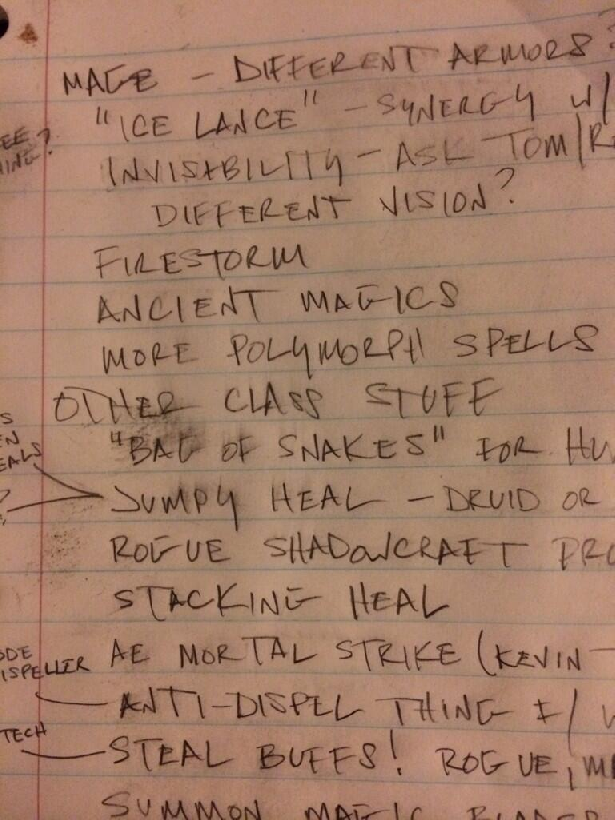 MAGE - DIFFERENT ARMORS?
"ICE LANCE" - SYNERGY W/
INVISABILITY - ASK TOM/R
DIFFERENT VISION?
FIRESTORM
ANCIENT MAGICS
MORE POLYMORPH SPELLS
OTHER CLASS STUFF
"BAG OF SNAKES" FOR HU
JUMPY HEAL - DRUID OR
ROGUE SHADOWCRAFT PRO
STACKING HEAL
AE MORTAL STRIKE (KEVIN -
ISPELLER
ANTI-DISPEL THING
TECH
STEAL BUFFS! ROGUE,
SUMMON MAGIC